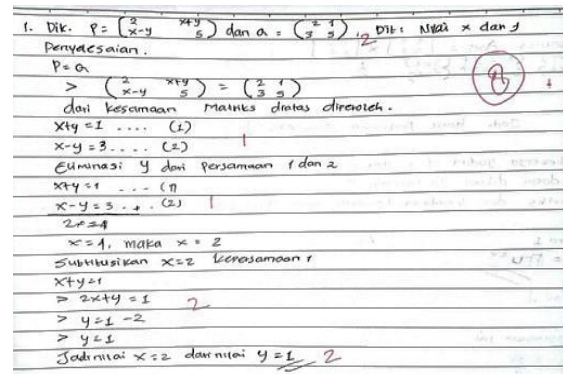 1. Dik. P = (2 x+y x-y 5) dan Q = (2 1 3 5), Dit: Nilai x dan y 2
Penyelesaian.
P = Q
> (2 x+y x-y 5) = (2 1 3 5) 8
dari kesamaan Matriks diatas diperoleh.
x+y = 1 .... (1)
x-y = 3 .... (2) 1
Eliminasi y dari Persamaan 1 dan 2
x+y = 1 ... (1)
x-y = 3 ... (2) 1
2x = 4
x = 4, maka x = 2
Subtitusikan x=2 kepersamaan 1
x+y=1
> 2x+y = 1 2
> y = 1 - 2
> y = 1
Jadi nilai x = 2 dan nilai y = 1 2